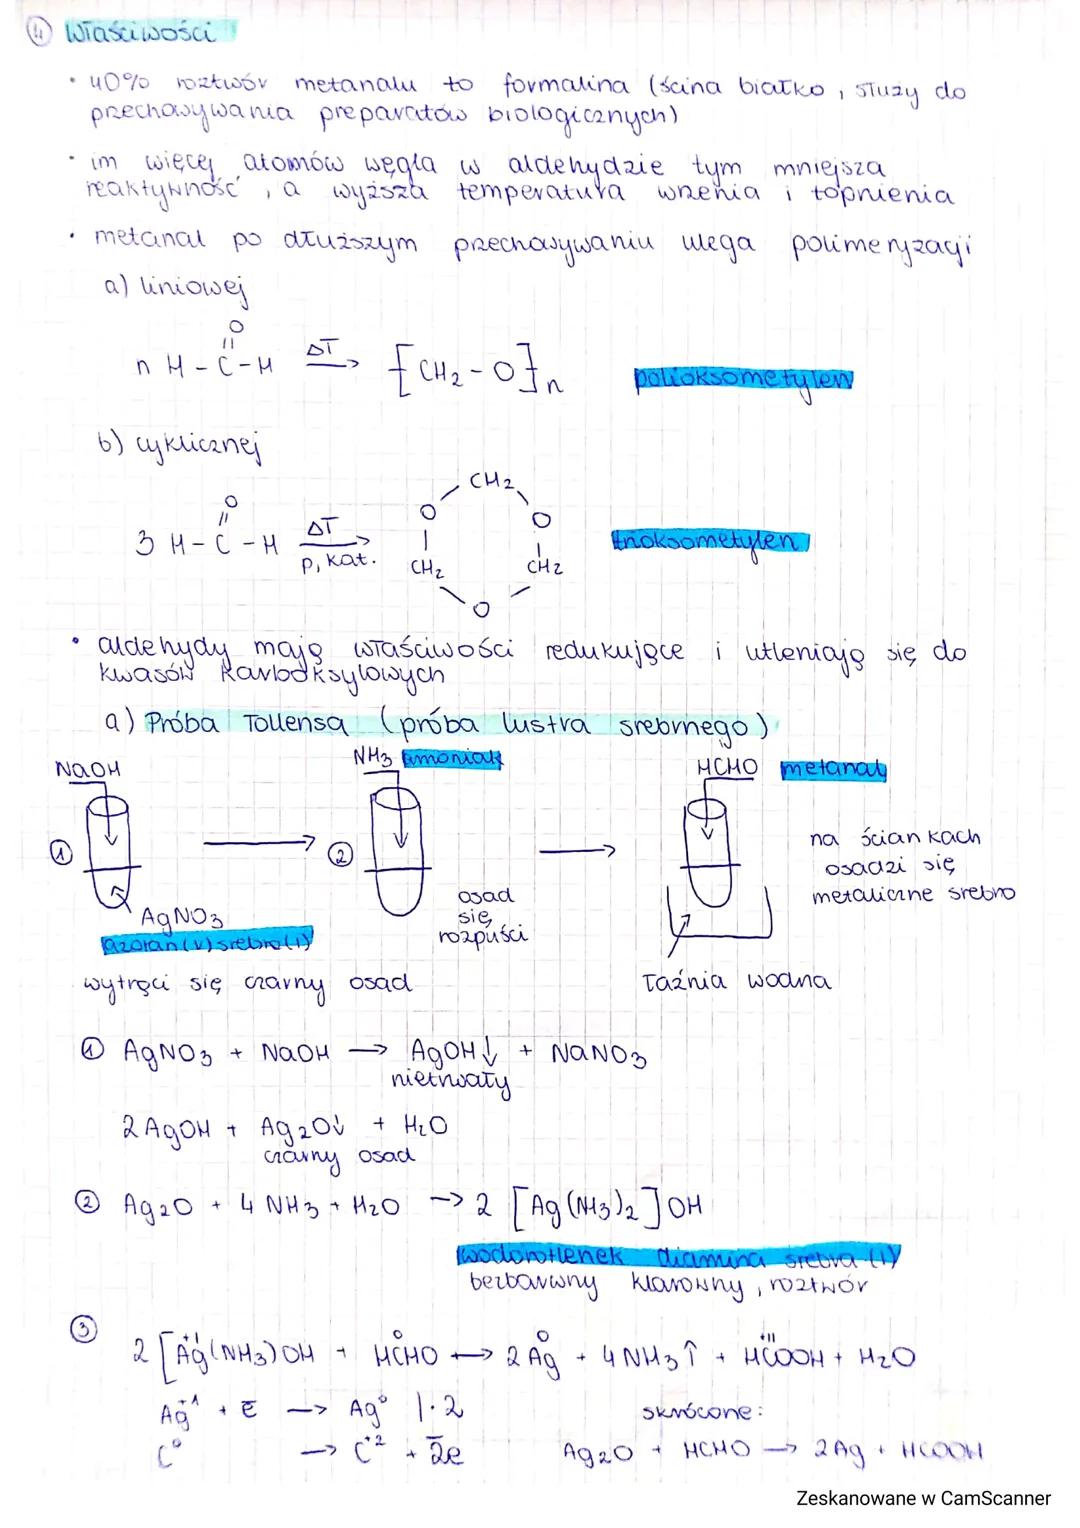 ④ Właściwości
• 40% roztwór metanalu to formalina (ścina białko, służy do
przechowywania preparatów biologicznych)
• im więcej atomów węgla w aldehydzie tym mniejsza
reaktywność, a wyższa temperatura wrzenia i topnienia
• metanal po dłuższym przechowywaniu ulega polimeryzacji
a) liniowej
O
||
n H-C-H ΔT → [CH2-O]n polioksometylen
b) cyklicznej
O
||
3 H-C-H ΔT → p, kat.
CH2
O O
CH2 CH2
O
trioksometylen
• aldehydy mają właściwości redukujące i utleniają się do
kwasów karboksylowych
a) Próba Tollensa (próba lustra srebrnego)
NaOH NH3 amoniak HCHO metanal
① → ② →
na ściankach
osadzi się
metaliczne srebro
AgNO3
azotan(V)srebra(I)
osad
się
rozpuści
wytrąci się czarny osad łaźnia wodna
① AgNO3 + NaOH → AgOH↓ + NaNO3
nietrwały
2AgOH + Ag2O↓ + H2O
czarny osad
② Ag2O + 4 NH3 + H2O → 2 [Ag(NH3)2]OH
wodorotlenek diamina srebra (I)
bezbarwny klarowny, roztwór
③
+I 0 0 +II
2[Ag(NH3)OH + HCHO → 2Ag + 4NH3↑ + HCOOH + H2O
Ag+1 + e → Ag0 |·2 skrócone:
C0 → C+2 + 2e Ag2O + HCHO → 2Ag + HCOOH
Zeskanowane w CamScanner